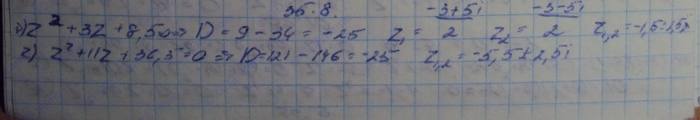 36.8.
в) z² + 3z + 8,5 = 0 => D = 9 - 34 = -25 z₁ = (-3+5i)/2 z₂ = (-3-5i)/2 z₁,₂ = -1,5 ± 2,5i
г) z² + 11z + 36,5 = 0 => D = 121 - 146 = -25 z₁,₂ = -5,5 ± 2,5i